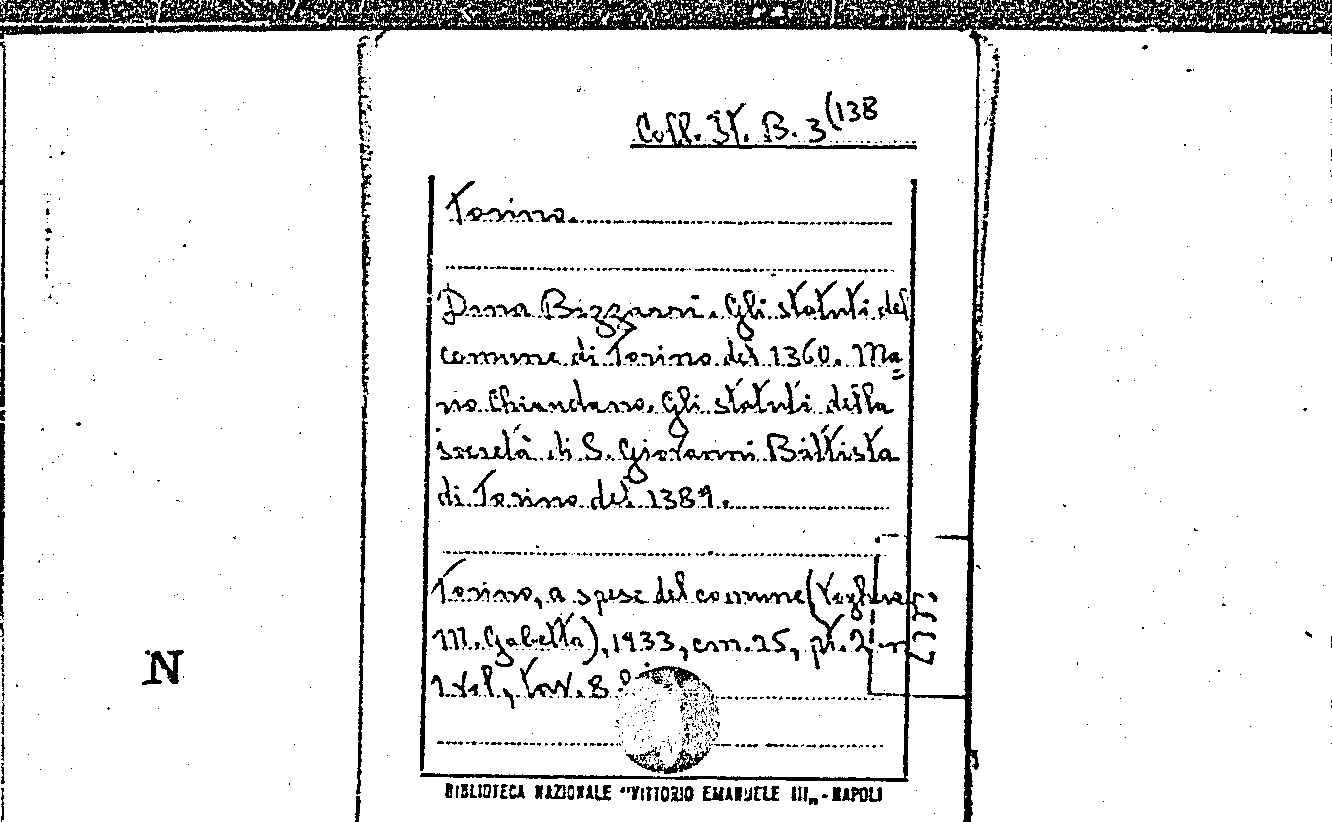 Coll. It. B. 3(138
Torino.
Dina Bizzarri. Gli statuti del
comune di Torino del 1360. Ma=
rio Chiaudano. Gli statuti della
società di S. Giovanni Battista
di Torino del 1389.
Torino, a spese del comune (Voghera,
M. Gabetta), 1933, cm. 25, pt. 2 in
1 vol., tav. 8.
N
BIBLIOTECA NAZIONALE "VITTORIO EMANUELE III„ - NAPOLI